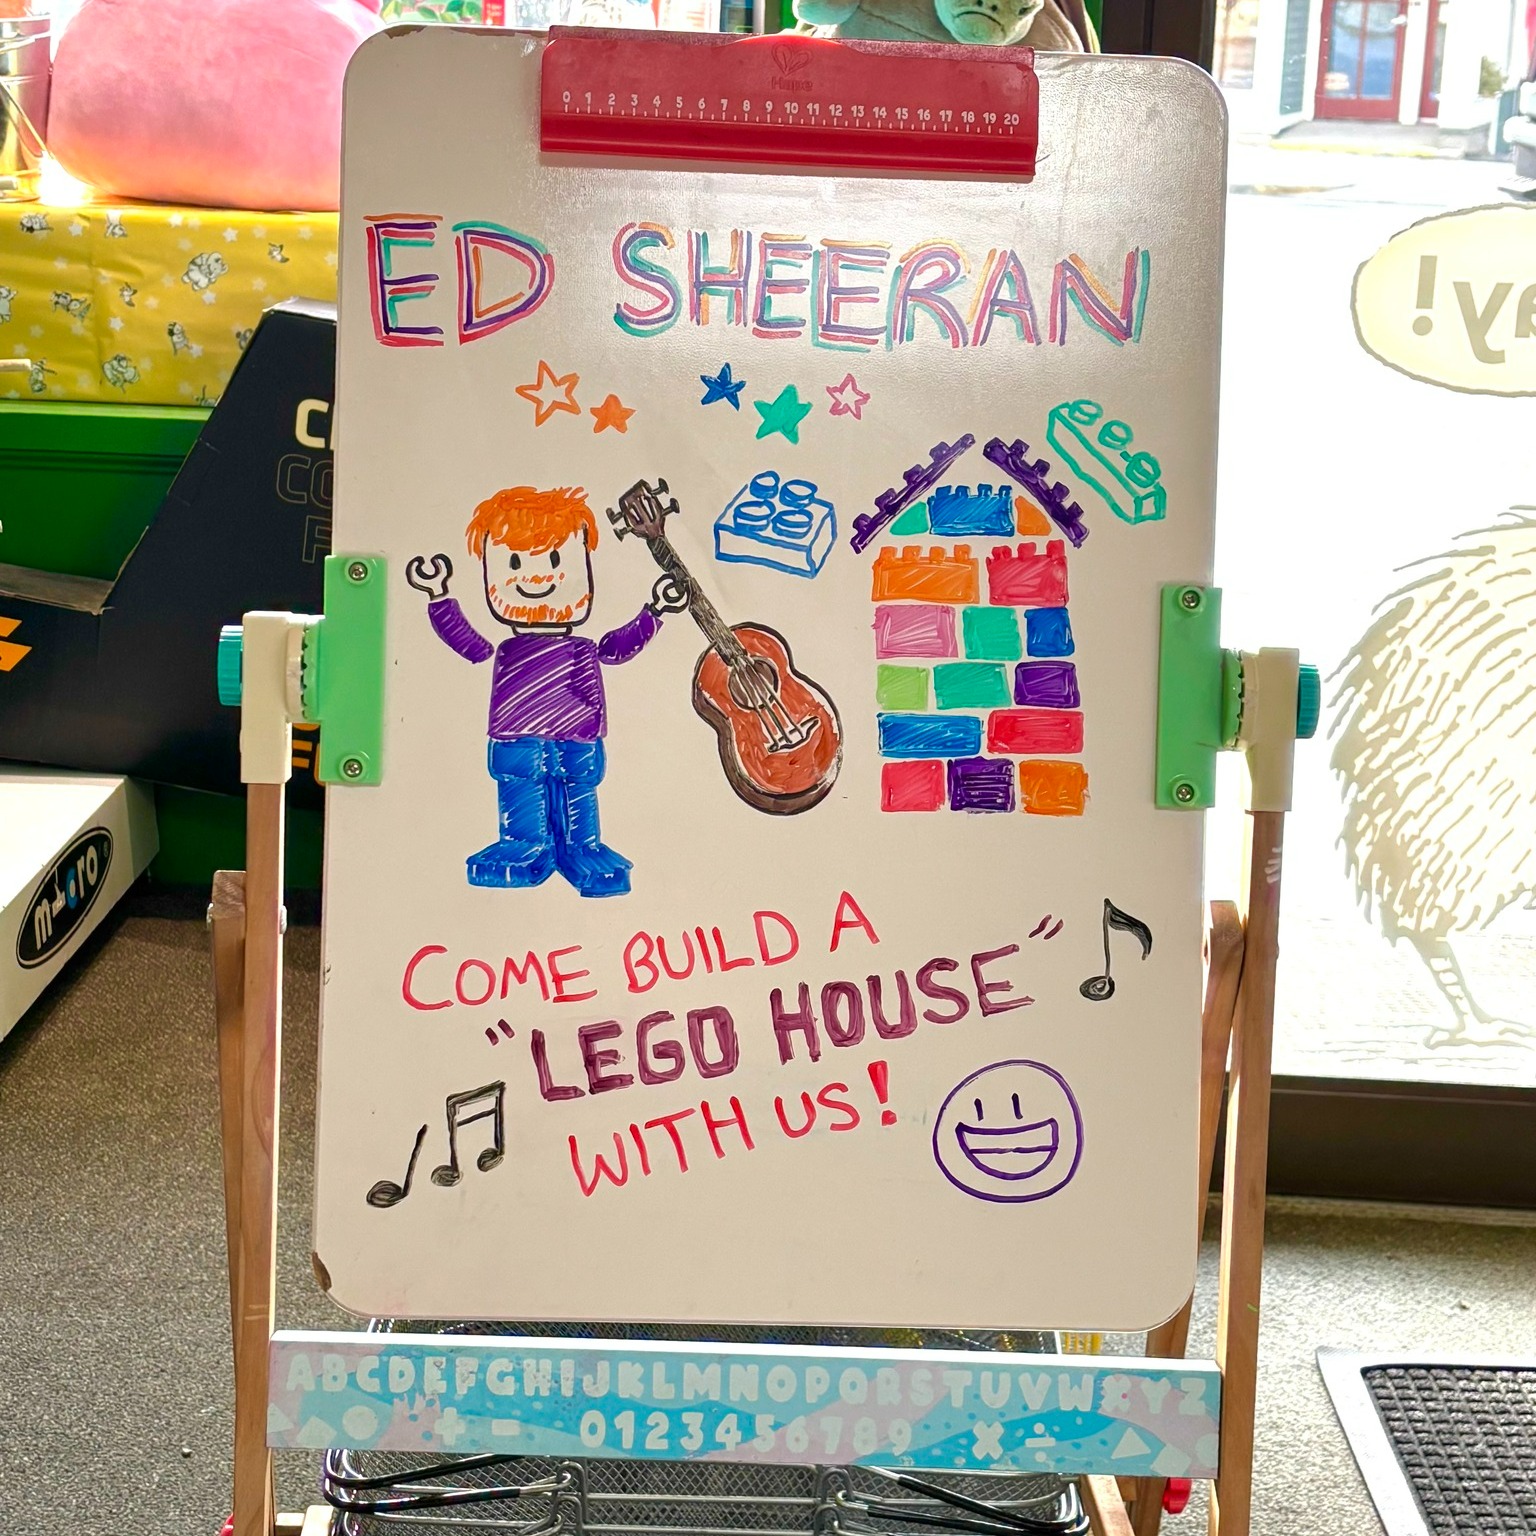 Hape
0 1 2 3 4 5 6 7 8 9 10 11 12 13 14 15 16 17 18 19 20
ED SHEERAN
COME BUILD A
"LEGO HOUSE"
WITH US!
micro
ABCDEFGHIJKLMNOPQRSTUVWXYZ
+ - 0123456789 × ÷